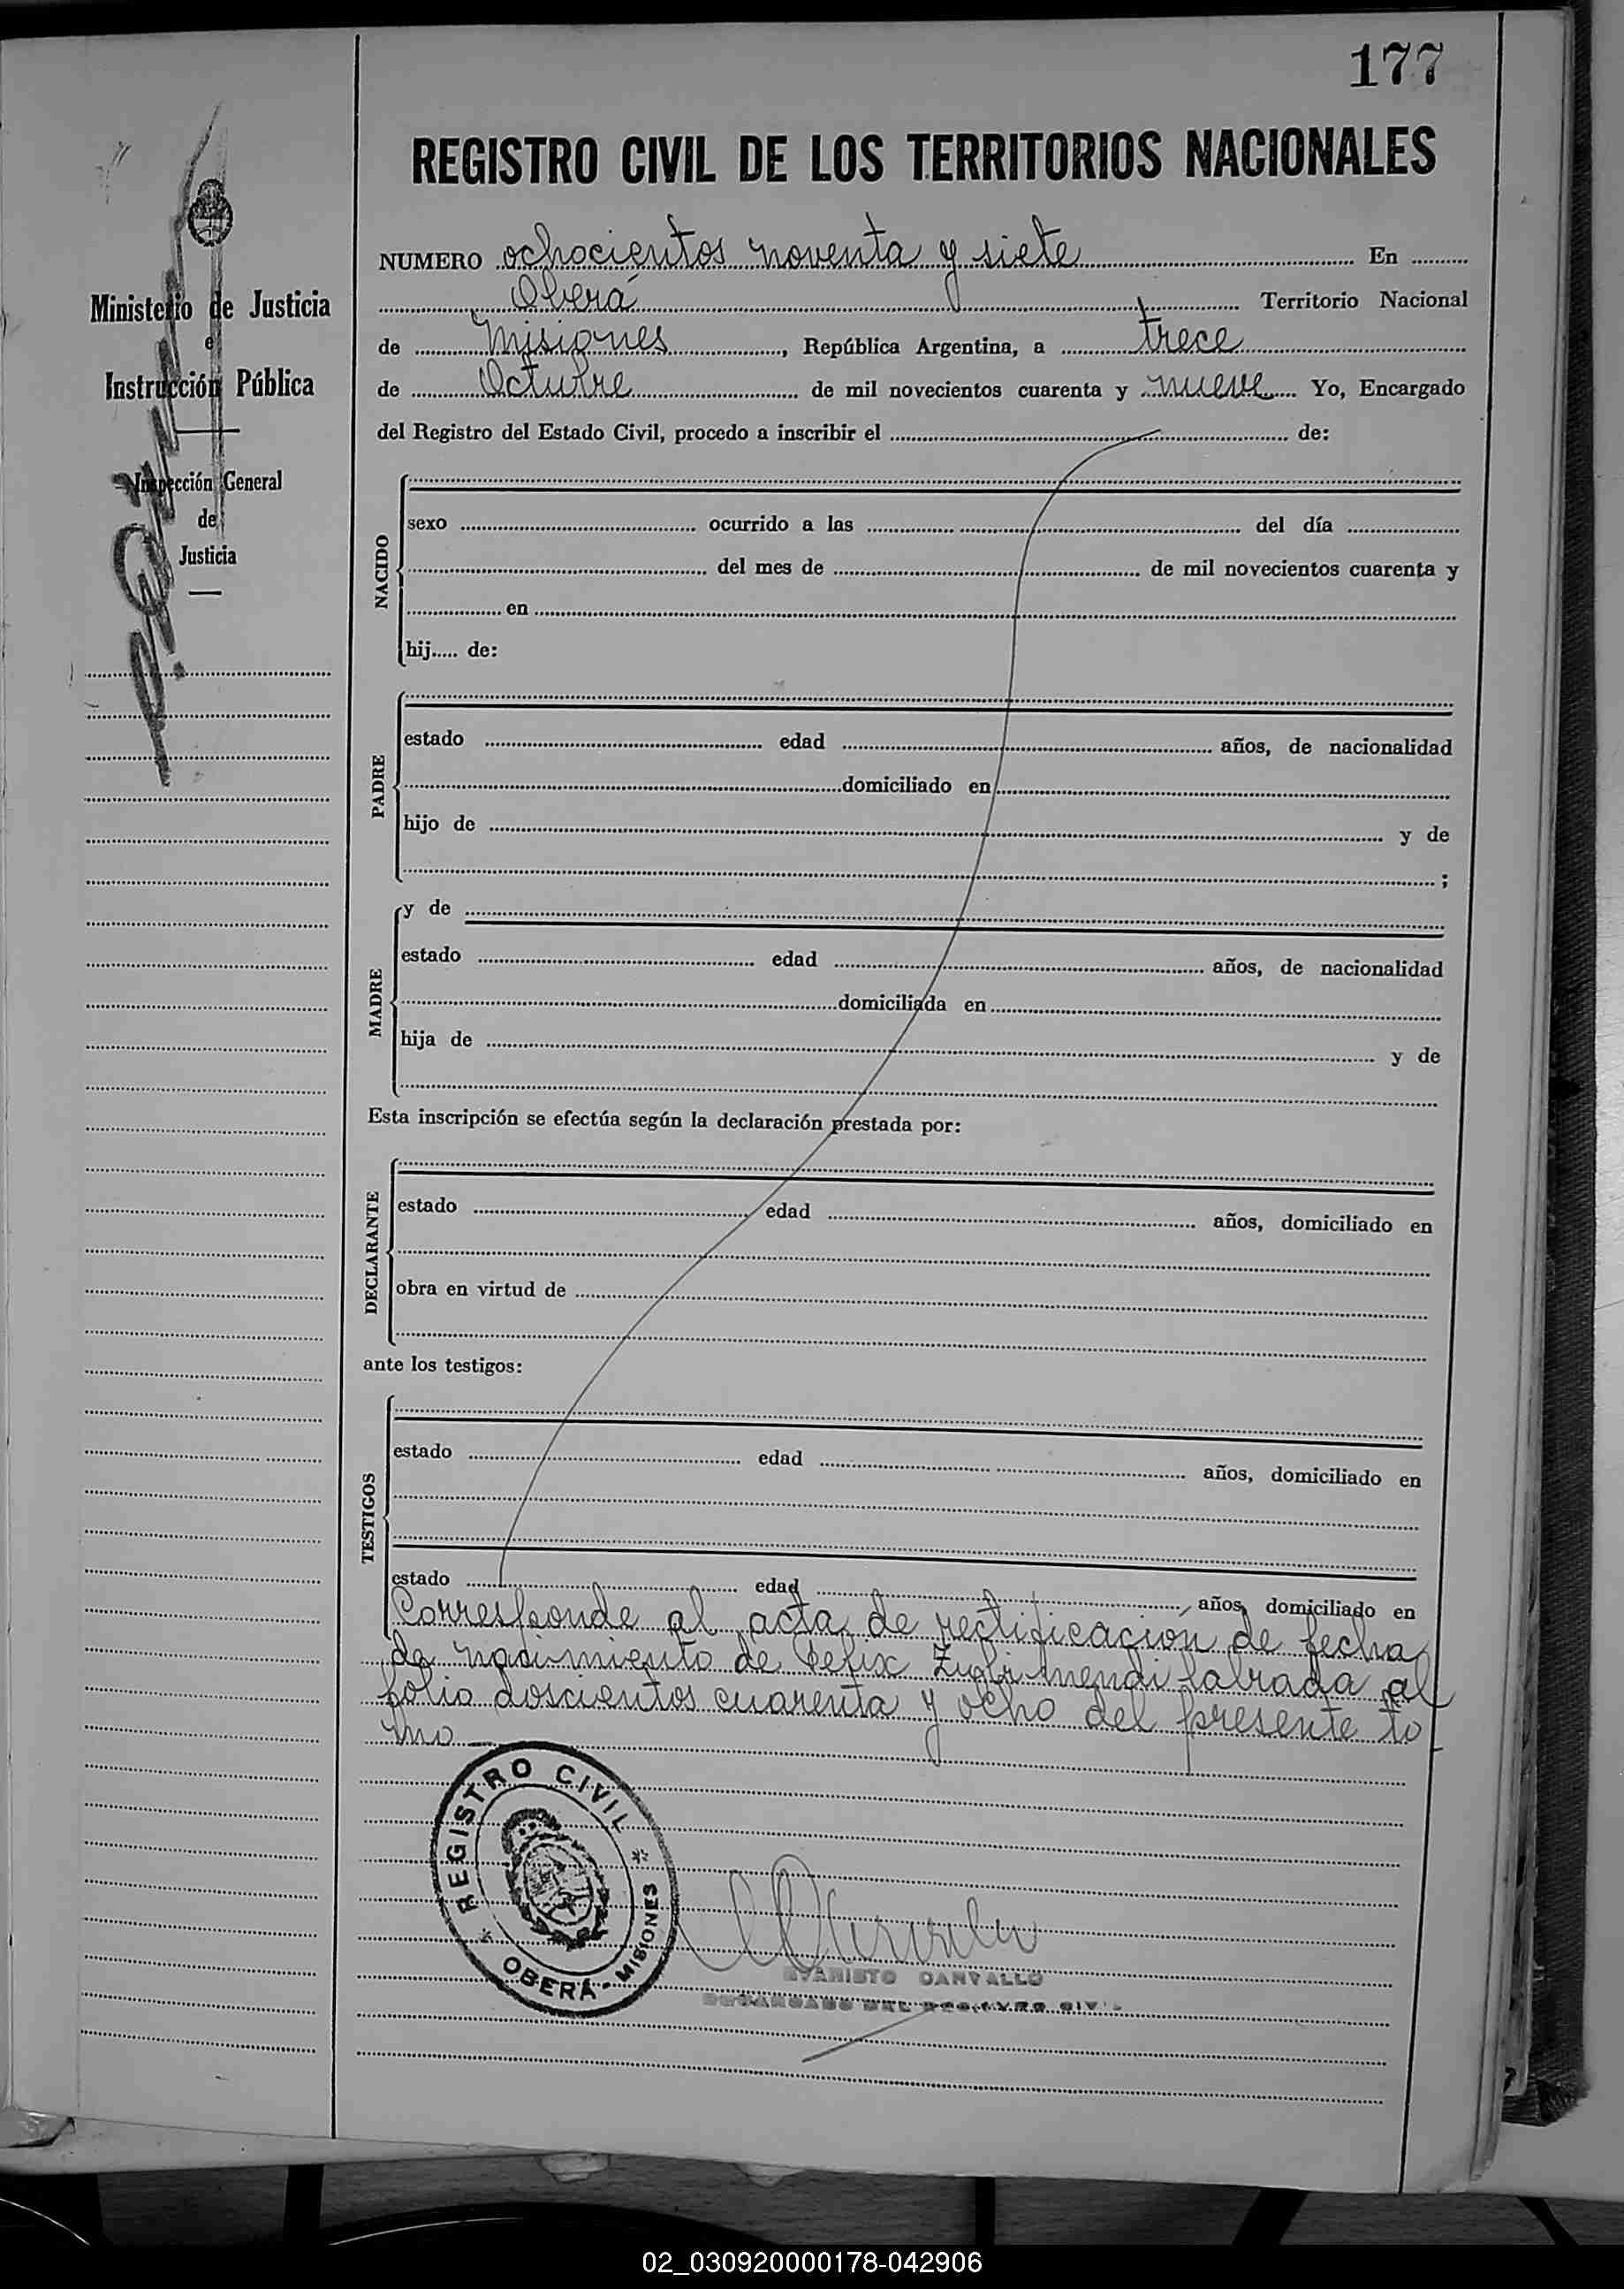 177
REGISTRO CIVIL DE LOS TERRITORIOS NACIONALES
Ministerio de Justicia
e
Instrucción Pública
Inspección General
de
Justicia
NUMERO ochocientos noventa y siete En
Oberá Territorio Nacional
de Misiones, República Argentina, a trece
de Octubre de mil novecientos cuarenta y nueve Yo, Encargado
del Registro del Estado Civil, procedo a inscribir el de:
NACIDO
sexo ocurrido a las del día
del mes de de mil novecientos cuarenta y
en
hij..... de:
PADRE
estado edad años, de nacionalidad
domiciliado en
hijo de y de
;
MADRE
y de
estado edad años, de nacionalidad
domiciliada en
hija de y de
Esta inscripción se efectúa según la declaración prestada por:
DECLARANTE
estado edad años, domiciliado en
obra en virtud de
ante los testigos:
TESTIGOS
estado edad años, domiciliado en
estado edad años, domiciliado en
Corresponde al acta de rectificacion de fecha
de nacimiento de Felix Zubimendi labrada al
folio doscientos cuarenta y ocho del presente to
mo
REGISTRO CIVIL
OBERÁ - MISIONES
EVARISTO CARVALLO
ENCARGADO DEL REGISTRO CIVIL
02_030920000178-042906